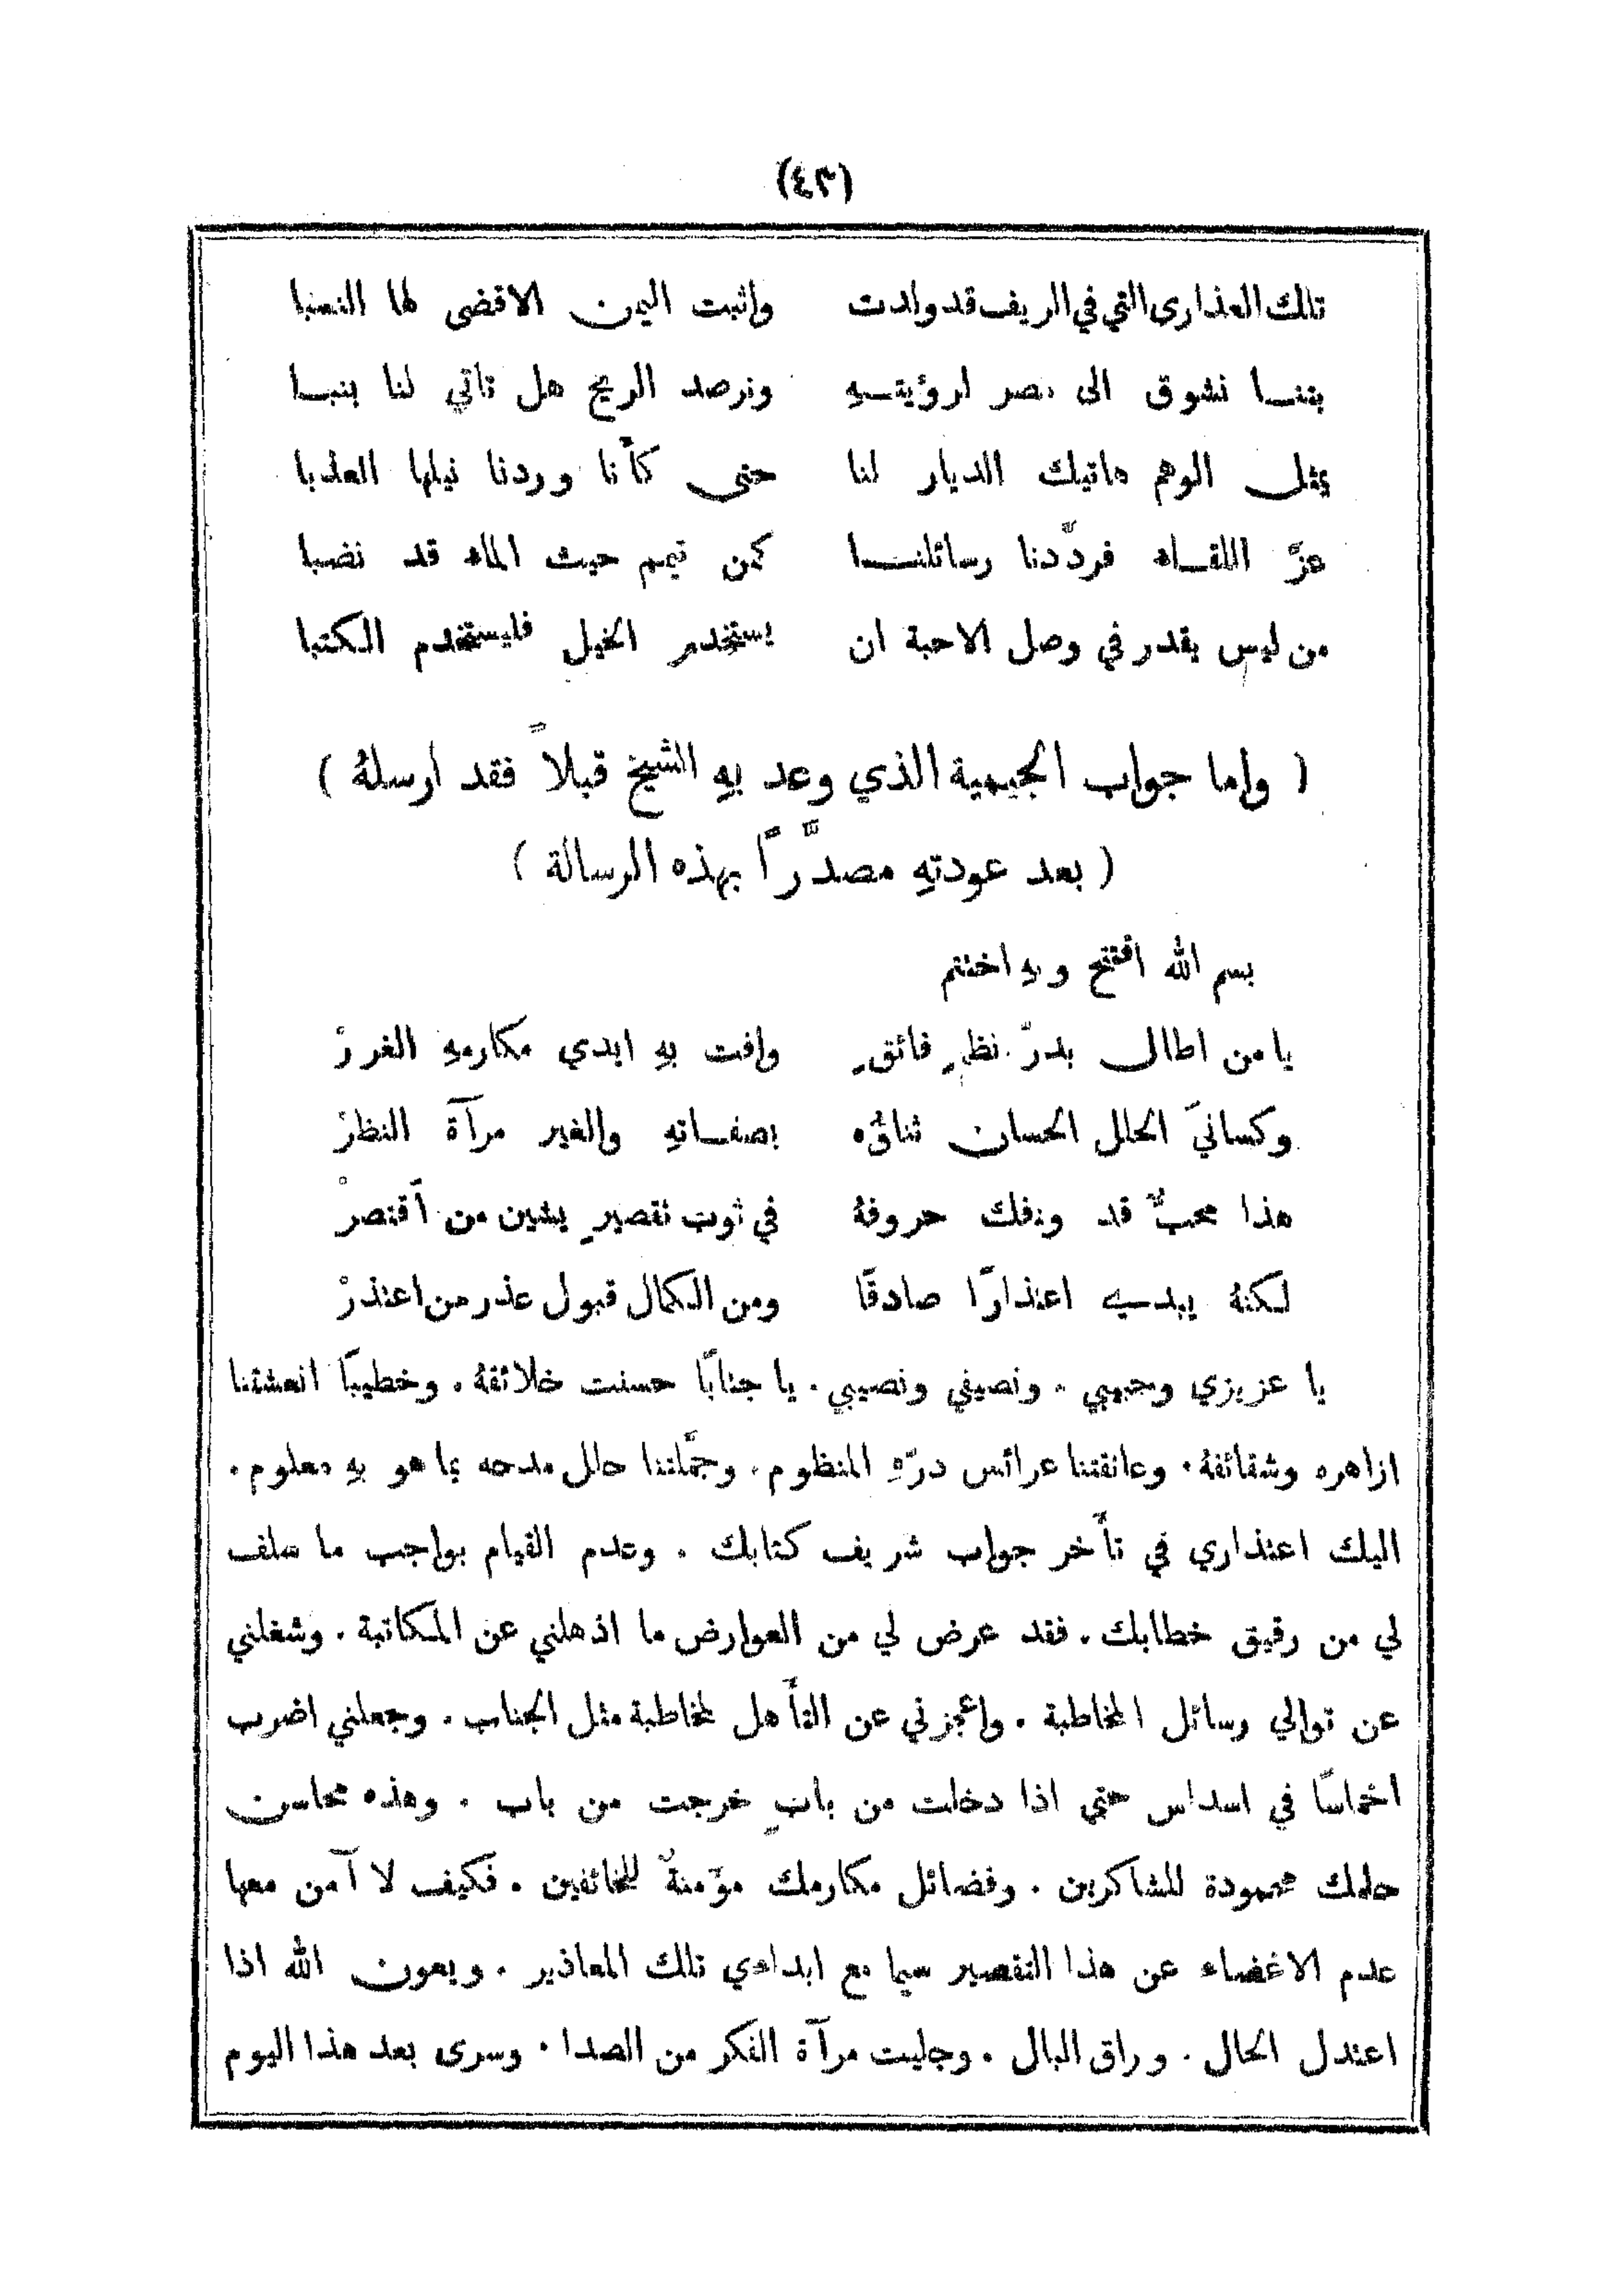 (٤٣)
تلك العذارى التي في الريف قد ولدت واثبت اليمن الاقضى لها النسبا
بتنـا نشوق الى مصر لرؤيتـهِ ونرصد الريح هل تاتي لنا بنبـا
يمثل الوهم هاتيك الديار لنا حتى كأنا وردنا نيلها العذبا
عزَّ اللقـاء فردَّدنا رسائلنـا كمن تيمم حيث الماء قد نضبا
من ليس يقدر في وصل الاحبة ان يستخدم الخيل فليستخدم الكتبا
( واما جواب الجيمية الذي وعد بهِ الشيخ قبلاً فقد ارسلهُ )
( بعد عودتهِ مصدَّرًا بهذه الرسالة )
بسم الله افتتح وبهِ اختتم
يا من اطال بدرّ نظمٍ فائقٍ وافت بهِ ايدي مكارمهِ الغررْ
وكسانيَ الحلل الحسان ثناؤُه بصفـاتهِ والغير مرآة النظرْ
هذا محبٌّ قد وفتك حروفهُ في ثوب تقصيرٍ يشين من اقتصرْ
لكنهُ يبدي اعتذارًا صادقًا ومن الكمال قبول عذر من اعتذرْ
يا عزيزي وحبيبي . ونصيفي ونصيبي . يا جنابًا حسنت خلائقهُ . وخطيبًا انعشتنا
ازاهره وشقائقهُ . وعانقتنا عرائس درّهِ المنظوم . وجمَّلتنا حلل مدحه بما هو بهِ معلوم .
اليك اعتذاري في تأخر جواب شريف كتابك . وعدم القيام بواجب ما سلف
لي من رقيق خطابك . فقد عرض لي من العوارض ما اذهلني عن المكاتبة . وشغلني
عن توالي رسائل المخاطبة . واعجزني عن التأهل لمخاطبة مثل الجناب . وجعلني اضرب
اخماسًا في اسداس حتى اذا دخلت من بابٍ خرجت من باب . وهذه محاسن
حلمك محمودة للشاكرين . وفضائل مكارمك مؤمنةٌ للخائفين . فكيف لا آمن معها
عدم الاغضاء عن هذا التقصير سيما مع ابداءي تلك المعاذير . وبعون الله اذا
اعتدل الحال . وراق البال . وجليت مرآة الفكر من الصدا . وسرى بعد هذا اليوم